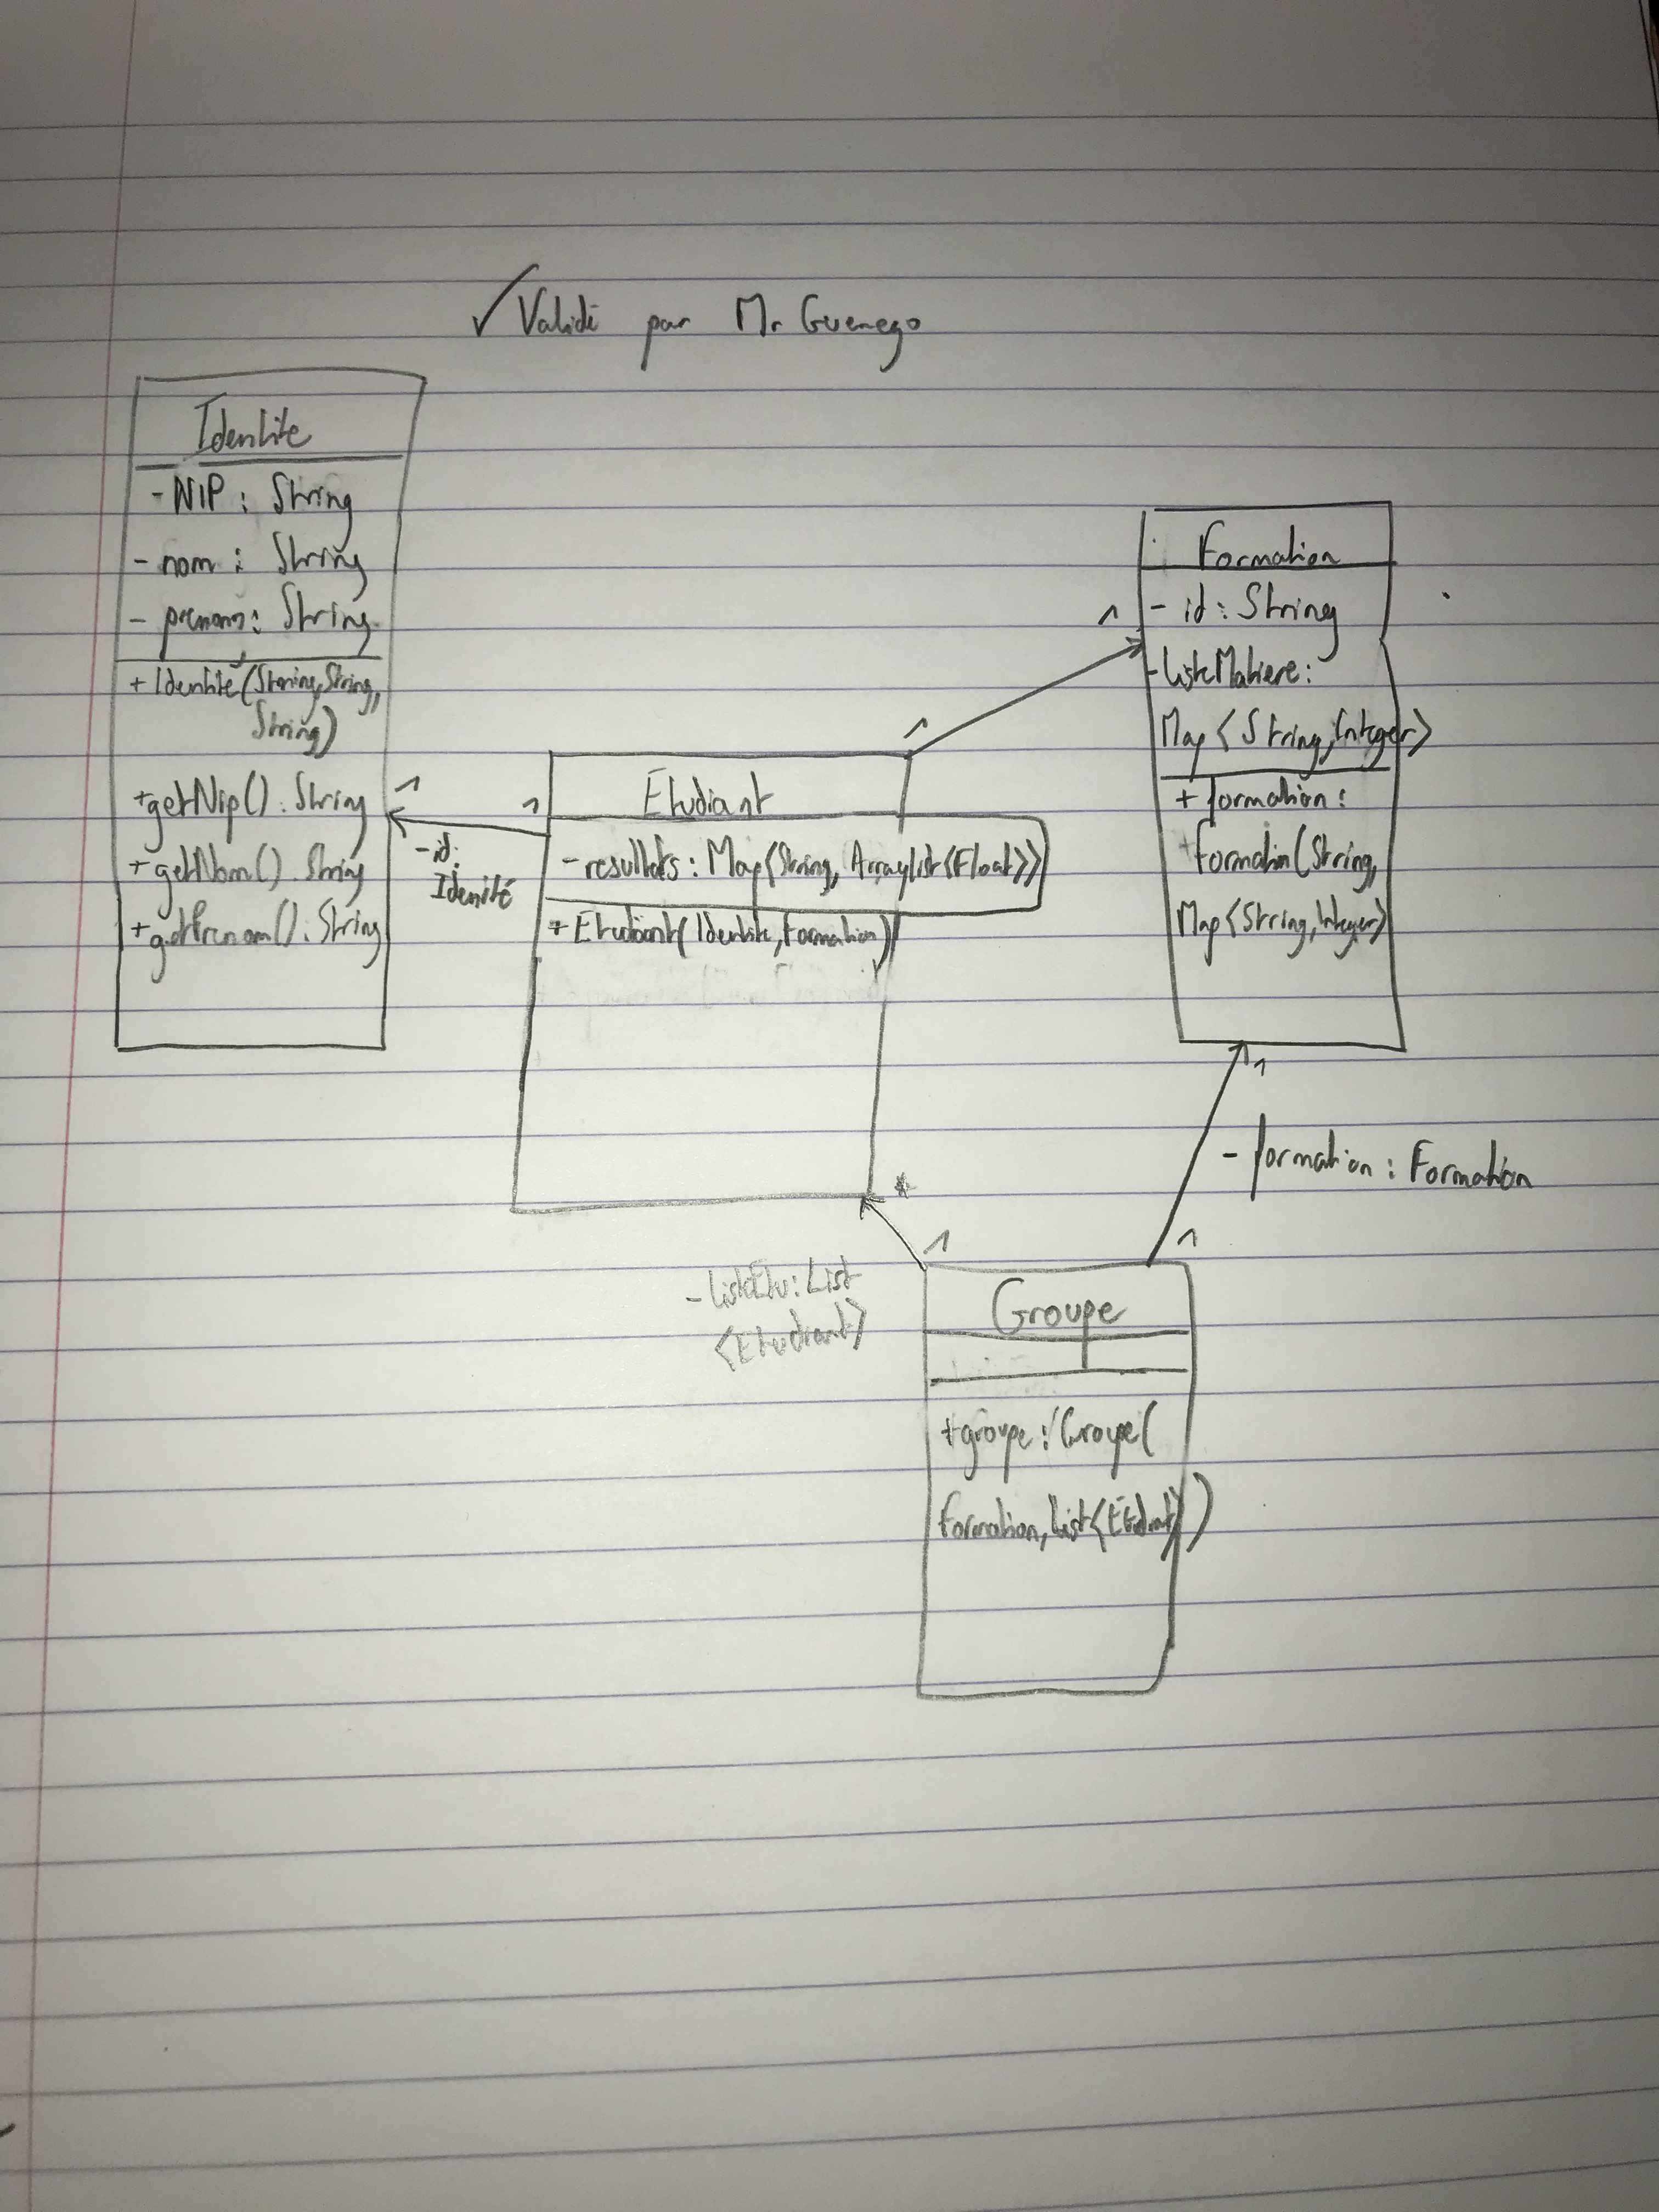 ✓ Validé par Mr Guenego
Identite
- NIP : String
- nom : String
- prenom : String
+ Identite(String,String,
String)
+getNip() : String
+getNom() : String
+getPrenom() : String
1
1
- id :
Idenité
Etudiant
- resultats : Map<String, ArrayList<Float>>
+ Etudiant(Identite, Formation)
1
1
Formation
- id : String
- listeMatiere :
Map <String,Integer>
+ formation :
Formation(String,
Map<String,Integer>
1
- formation : Formation
1
*
1
- listeEtu : List
<Etudiant>
Groupe
+groupe : Groupe(
Formation, List<Etudiant>)